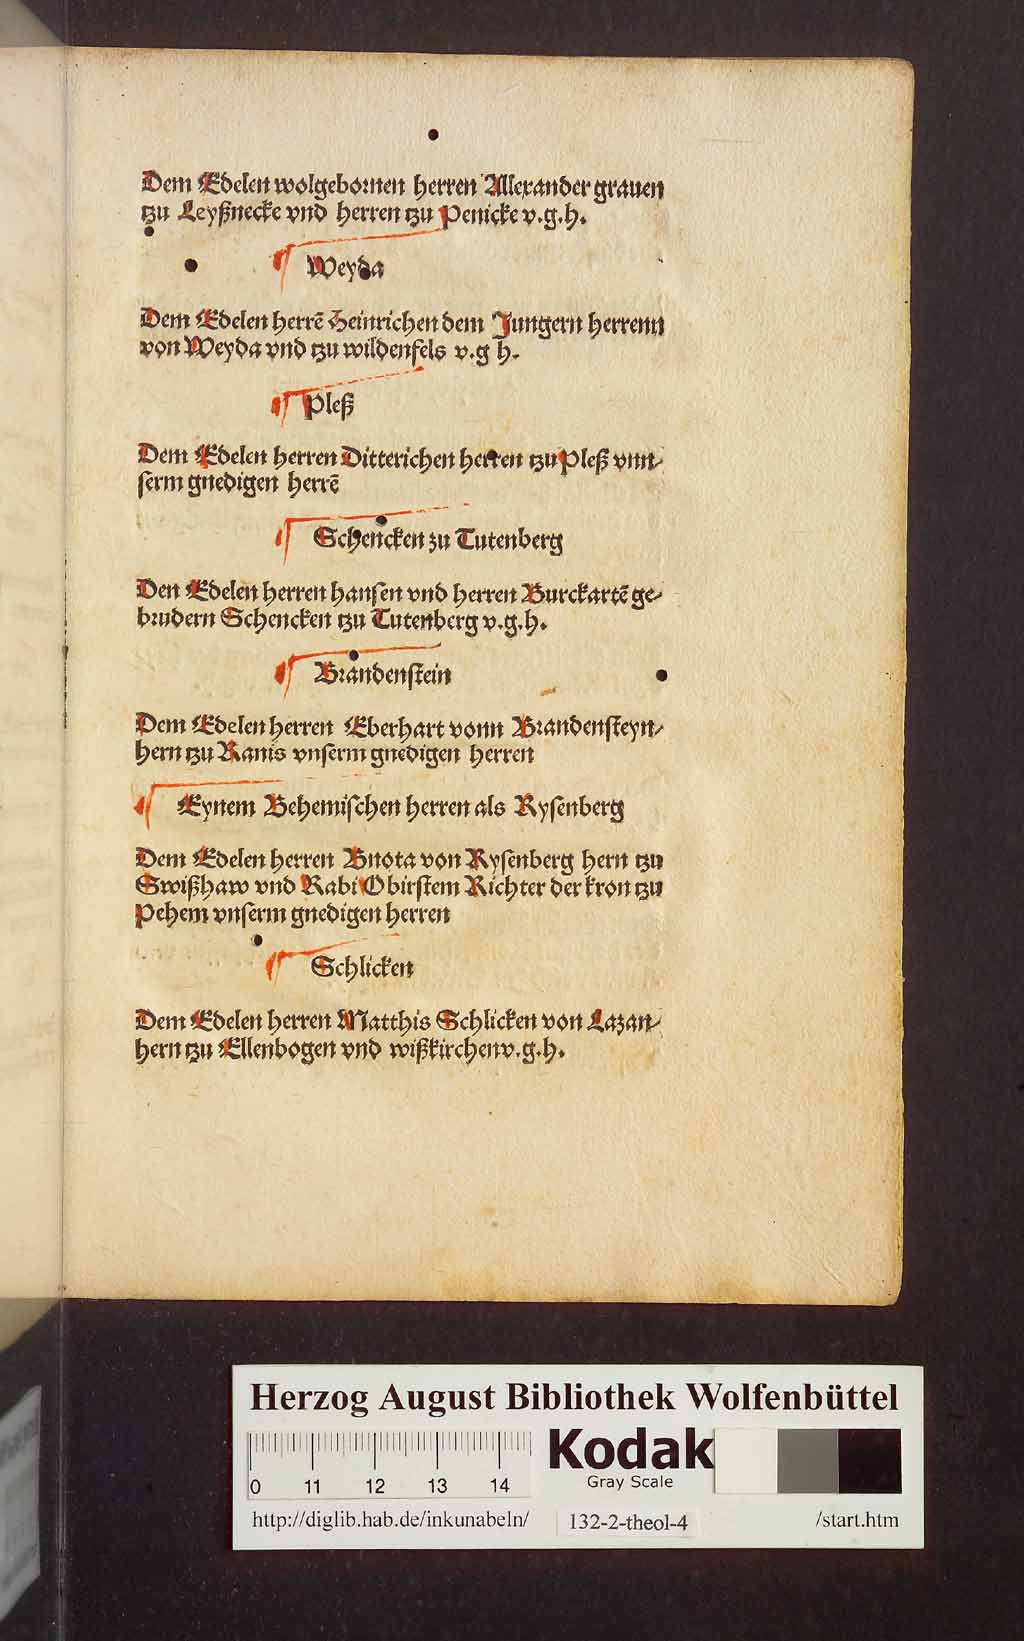 Dem Edelen wolgebornen herren Allexander grauen
tzu Leyßnecke vnd herren tzu Penicke v.g.h.
Weyda
Dem Edelen herrē Heinrichen dem Jungern herrenn
von Weyda vnd tzu wildenfels v.g h.
Pleß
Dem Edelen herren Ditterichen herren tzu Pleß vnn⸗
serm gnedigen herrē
Schencken zu Tutenberg
Den Edelen herren hansen vnd herren Burckartē ge⸗
brudern Schencken tzu Tutenberg v.g.h.
Brandenstein
Dem Edelen herren Eberhart vonn Brandensteyn⸗
hern tzu Ranis vnserm gnedigen herren
Eynem Behemischen herren als Rysenberg
Dem Edelen herren Bnota von Rysenberg hern tzu
Swißhaw vnd Rabi Obirstem Richter der kron tzu
Pehem vnserm gnedigen herren
Schlicken
Dem Edelen herren Matthis Schlicken von Lazan⸗
hern tzu Ellenbogen vnd wißkirchen v.g.h.
Herzog August Bibliothek Wolfenbüttel
0 11 12 13 14
Kodak
Gray Scale
http://diglib.hab.de/inkunabeln/ 132-2-theol-4 /start.htm